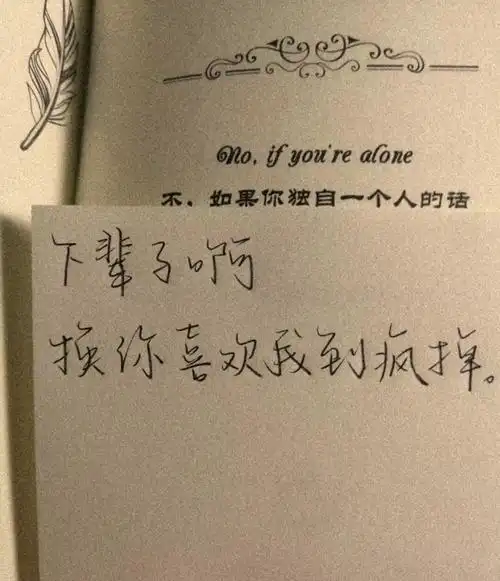 No, if you're alone
不，如果你独自一个人的话
下辈子啊
换你喜欢我到疯掉。